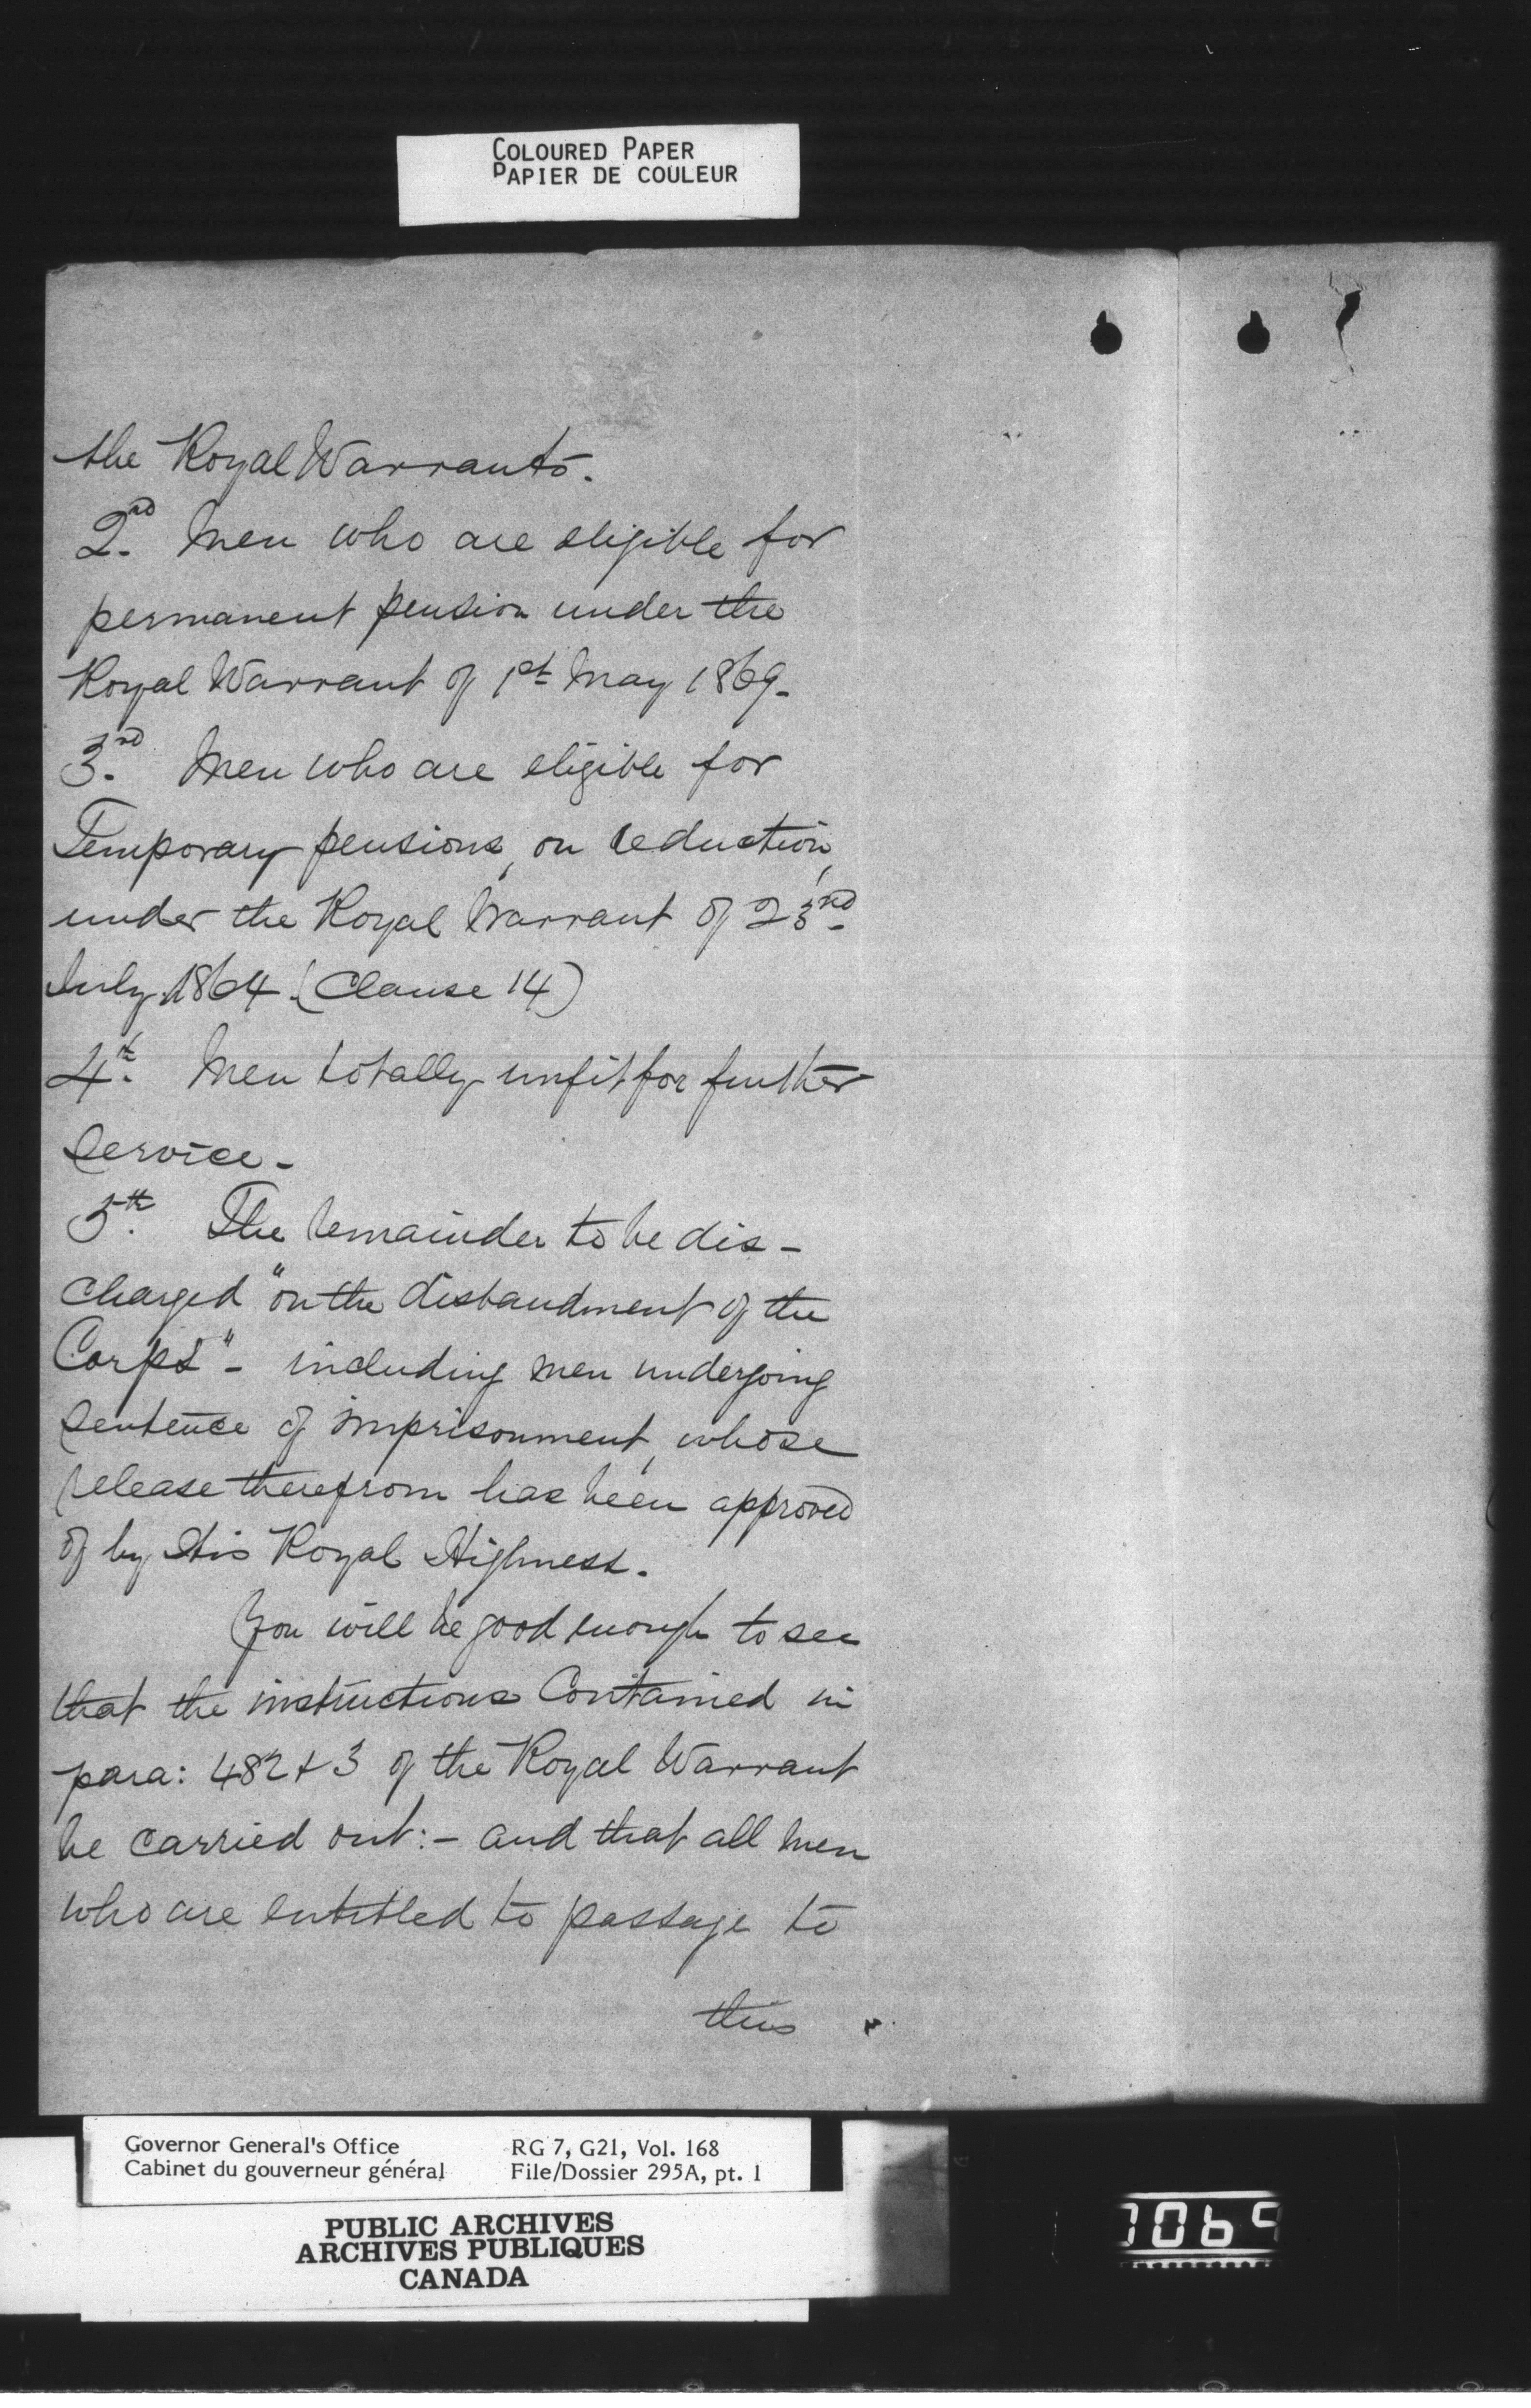 COLOURED PAPER
PAPIER DE COULEUR
the Royal Warrants.
2nd. Men who are eligible for
permanent pension under the
Royal Warrant of 1st May 1869.
3rd. Men who are eligible for
Temporary pensions, on reduction,
under the Royal Warrant of 23rd
July 1864. (Clause 14)
4th. Men totally unfit for further
Service -
5th. The remainder to be dis-
charged "on the disbandment of the
Corps" - including men undergoing
sentence of imprisonment, whose
release therefrom has been approved
of by His Royal Highness.
You will be good enough to see
that the instructions Contained in
para: 482 & 3 of the Royal Warrant
be carried out: - and that all men
who are entitled to passage to
this
Governor General's Office
Cabinet du gouverneur général
RG 7, G21, Vol. 168
File/Dossier 295A, pt. 1
PUBLIC ARCHIVES
ARCHIVES PUBLIQUES
CANADA